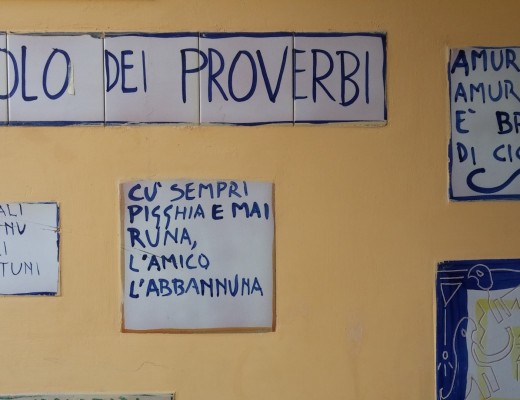 OLO DEI PROVERBI
AMUR
AMUR
È BR
DI CIC
ALI
NU
RI
TUNI
CU' SEMPRI
PIGGHIA E MAI
RUNA,
L'AMICO
L'ABBANNUNA